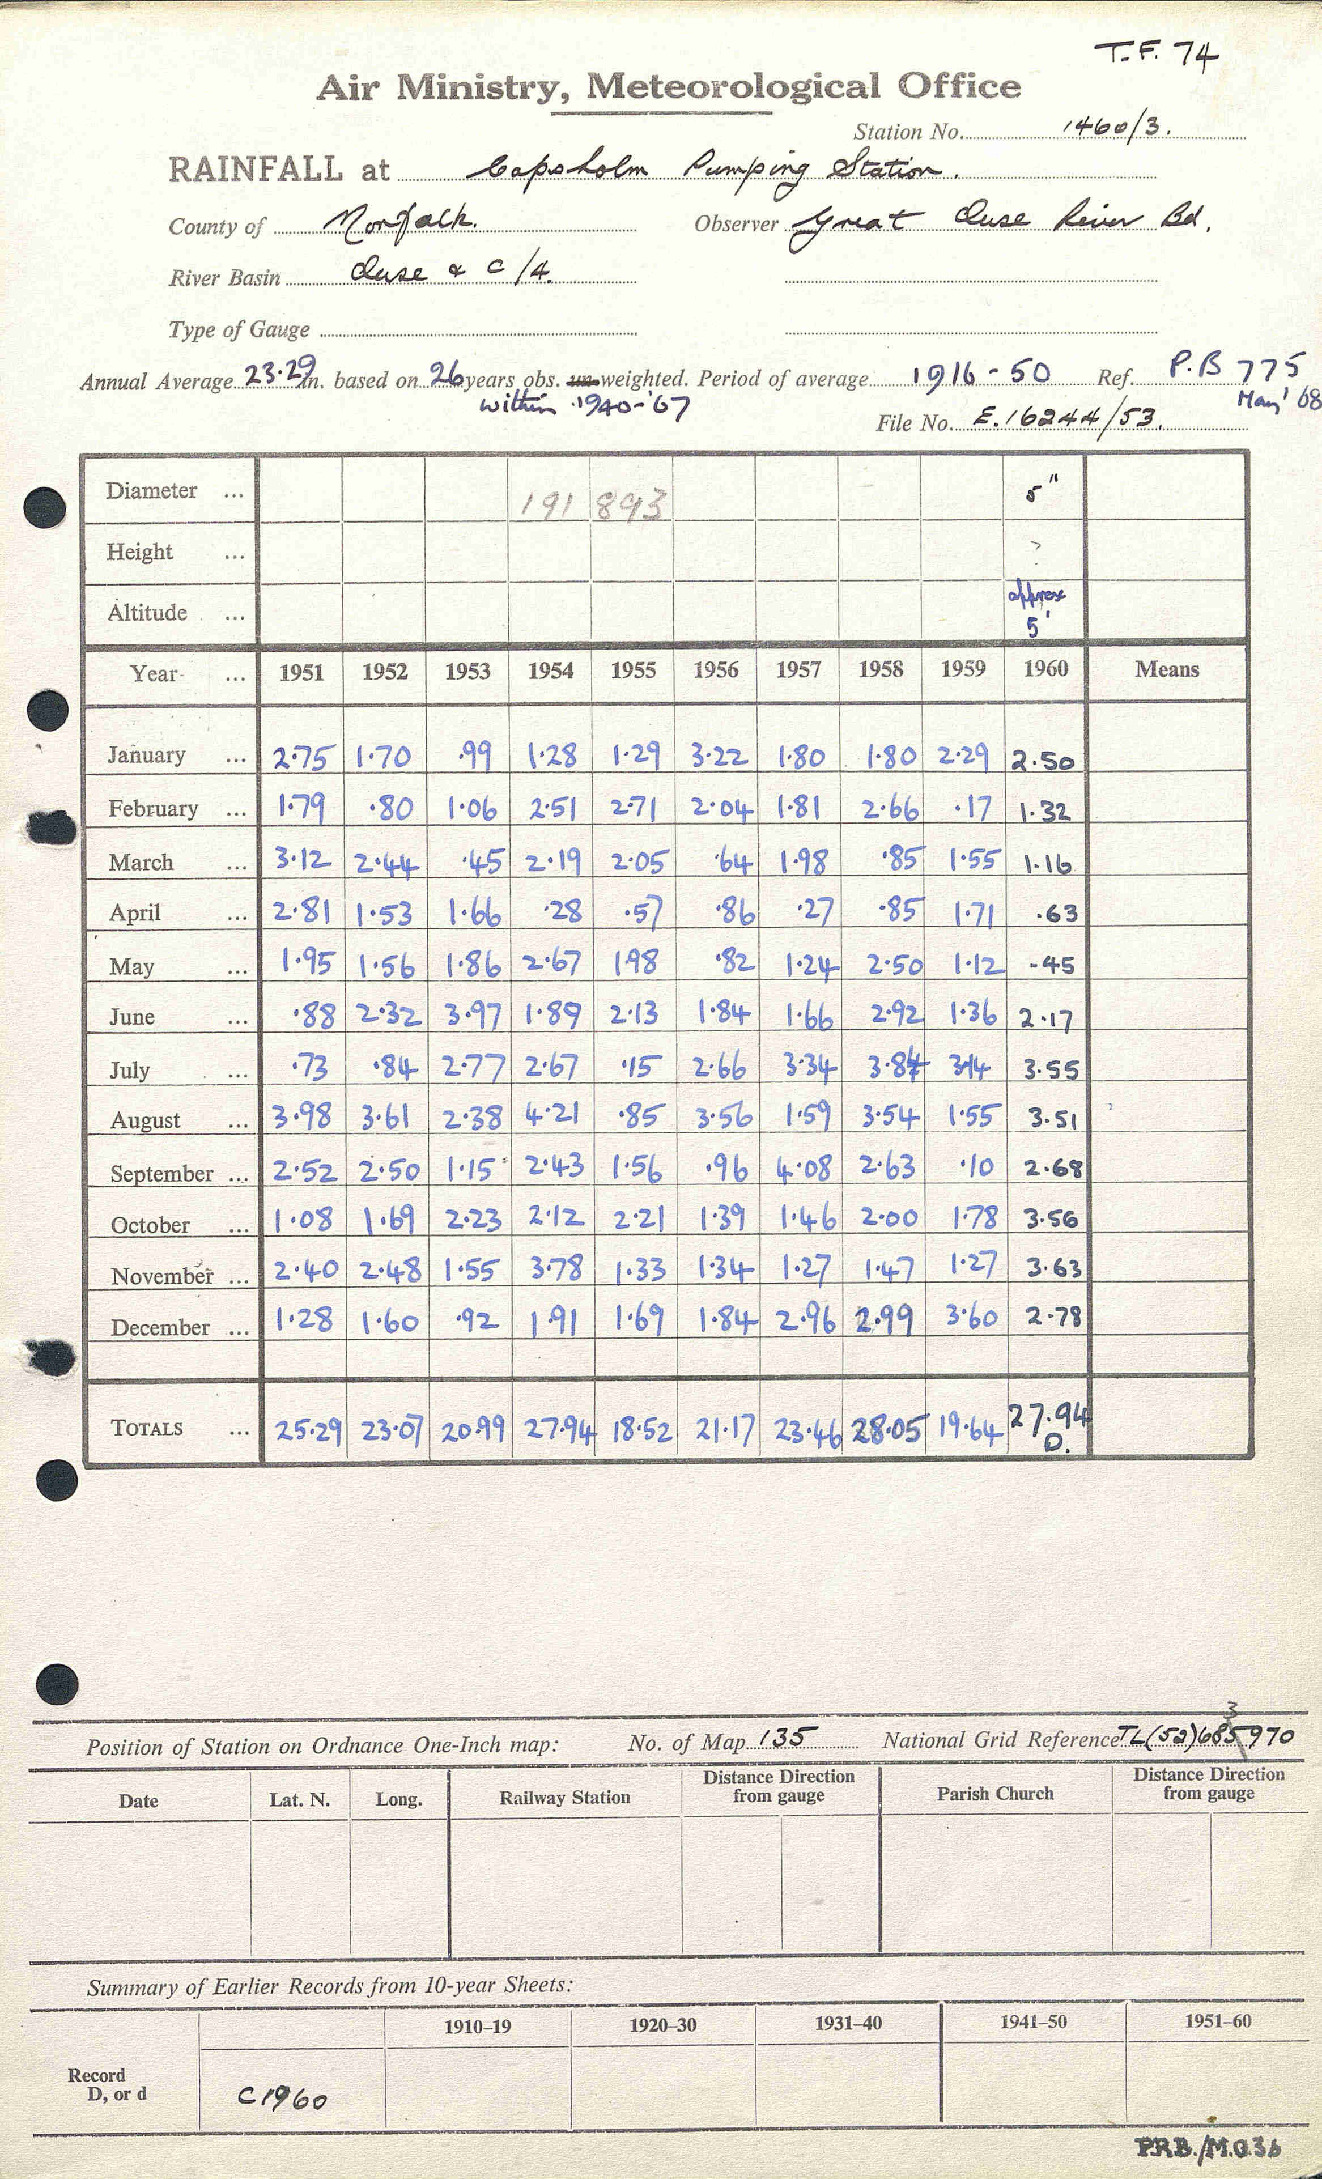 T.F. 74
Air Ministry, Meteorological Office
Station No. 1460/3.
RAINFALL at Capsholm Pumping Station.
County of Norfolk. Observer Great Ouse River Bd.
River Basin Ouse & C/4.
Type of Gauge
Annual Average 23.29 in. based on 26 years obs. un-weighted. Period of average 1916-50 Ref. P.B 775
within 1940-'67 May '68
File No. E.16244/53.
Diameter ... 191 893 5"
Height ... ?
Altitude ... approx 5'
Year ... 1951 1952 1953 1954 1955 1956 1957 1958 1959 1960 Means
January ... 2.75 1.70 .99 1.28 1.29 3.22 1.80 1.80 2.29 2.50
February ... 1.79 .80 1.06 2.51 2.71 2.04 1.81 2.66 .17 1.32
March ... 3.12 2.44 .45 2.19 2.05 .64 1.98 .85 1.55 1.16
April ... 2.81 1.53 1.66 .28 .57 .86 .27 .85 1.71 .63
May ... 1.95 1.56 1.86 2.67 1.98 .82 1.24 2.50 1.12 .45
June ... .88 2.32 3.97 1.89 2.13 1.84 1.66 2.92 1.36 2.17
July ... .73 .84 2.77 2.67 .15 2.66 3.34 3.84 3.14 3.55
August ... 3.98 3.61 2.38 4.21 .85 3.56 1.59 3.54 1.55 3.51
September ... 2.52 2.50 1.15 2.43 1.56 .96 4.08 2.63 .10 2.68
October ... 1.08 1.69 2.23 2.12 2.21 1.39 1.46 2.00 1.78 3.56
November ... 2.40 2.48 1.55 3.78 1.33 1.34 1.27 1.47 1.27 3.63
December ... 1.28 1.60 .92 1.91 1.69 1.84 2.96 2.99 3.60 2.78
TOTALS ... 25.29 23.07 20.99 27.94 18.52 21.17 23.46 28.05 19.64 27.94 D.
Position of Station on Ordnance One-Inch map: No. of Map 135 National Grid Reference TL(52)685970
3
Date Lat. N. Long. Railway Station Distance Direction from gauge Parish Church Distance Direction from gauge
Summary of Earlier Records from 10-year Sheets:
1910–19 1920–30 1931–40 1941–50 1951–60
Record
D, or d C1960
P.R.B./M.O.36